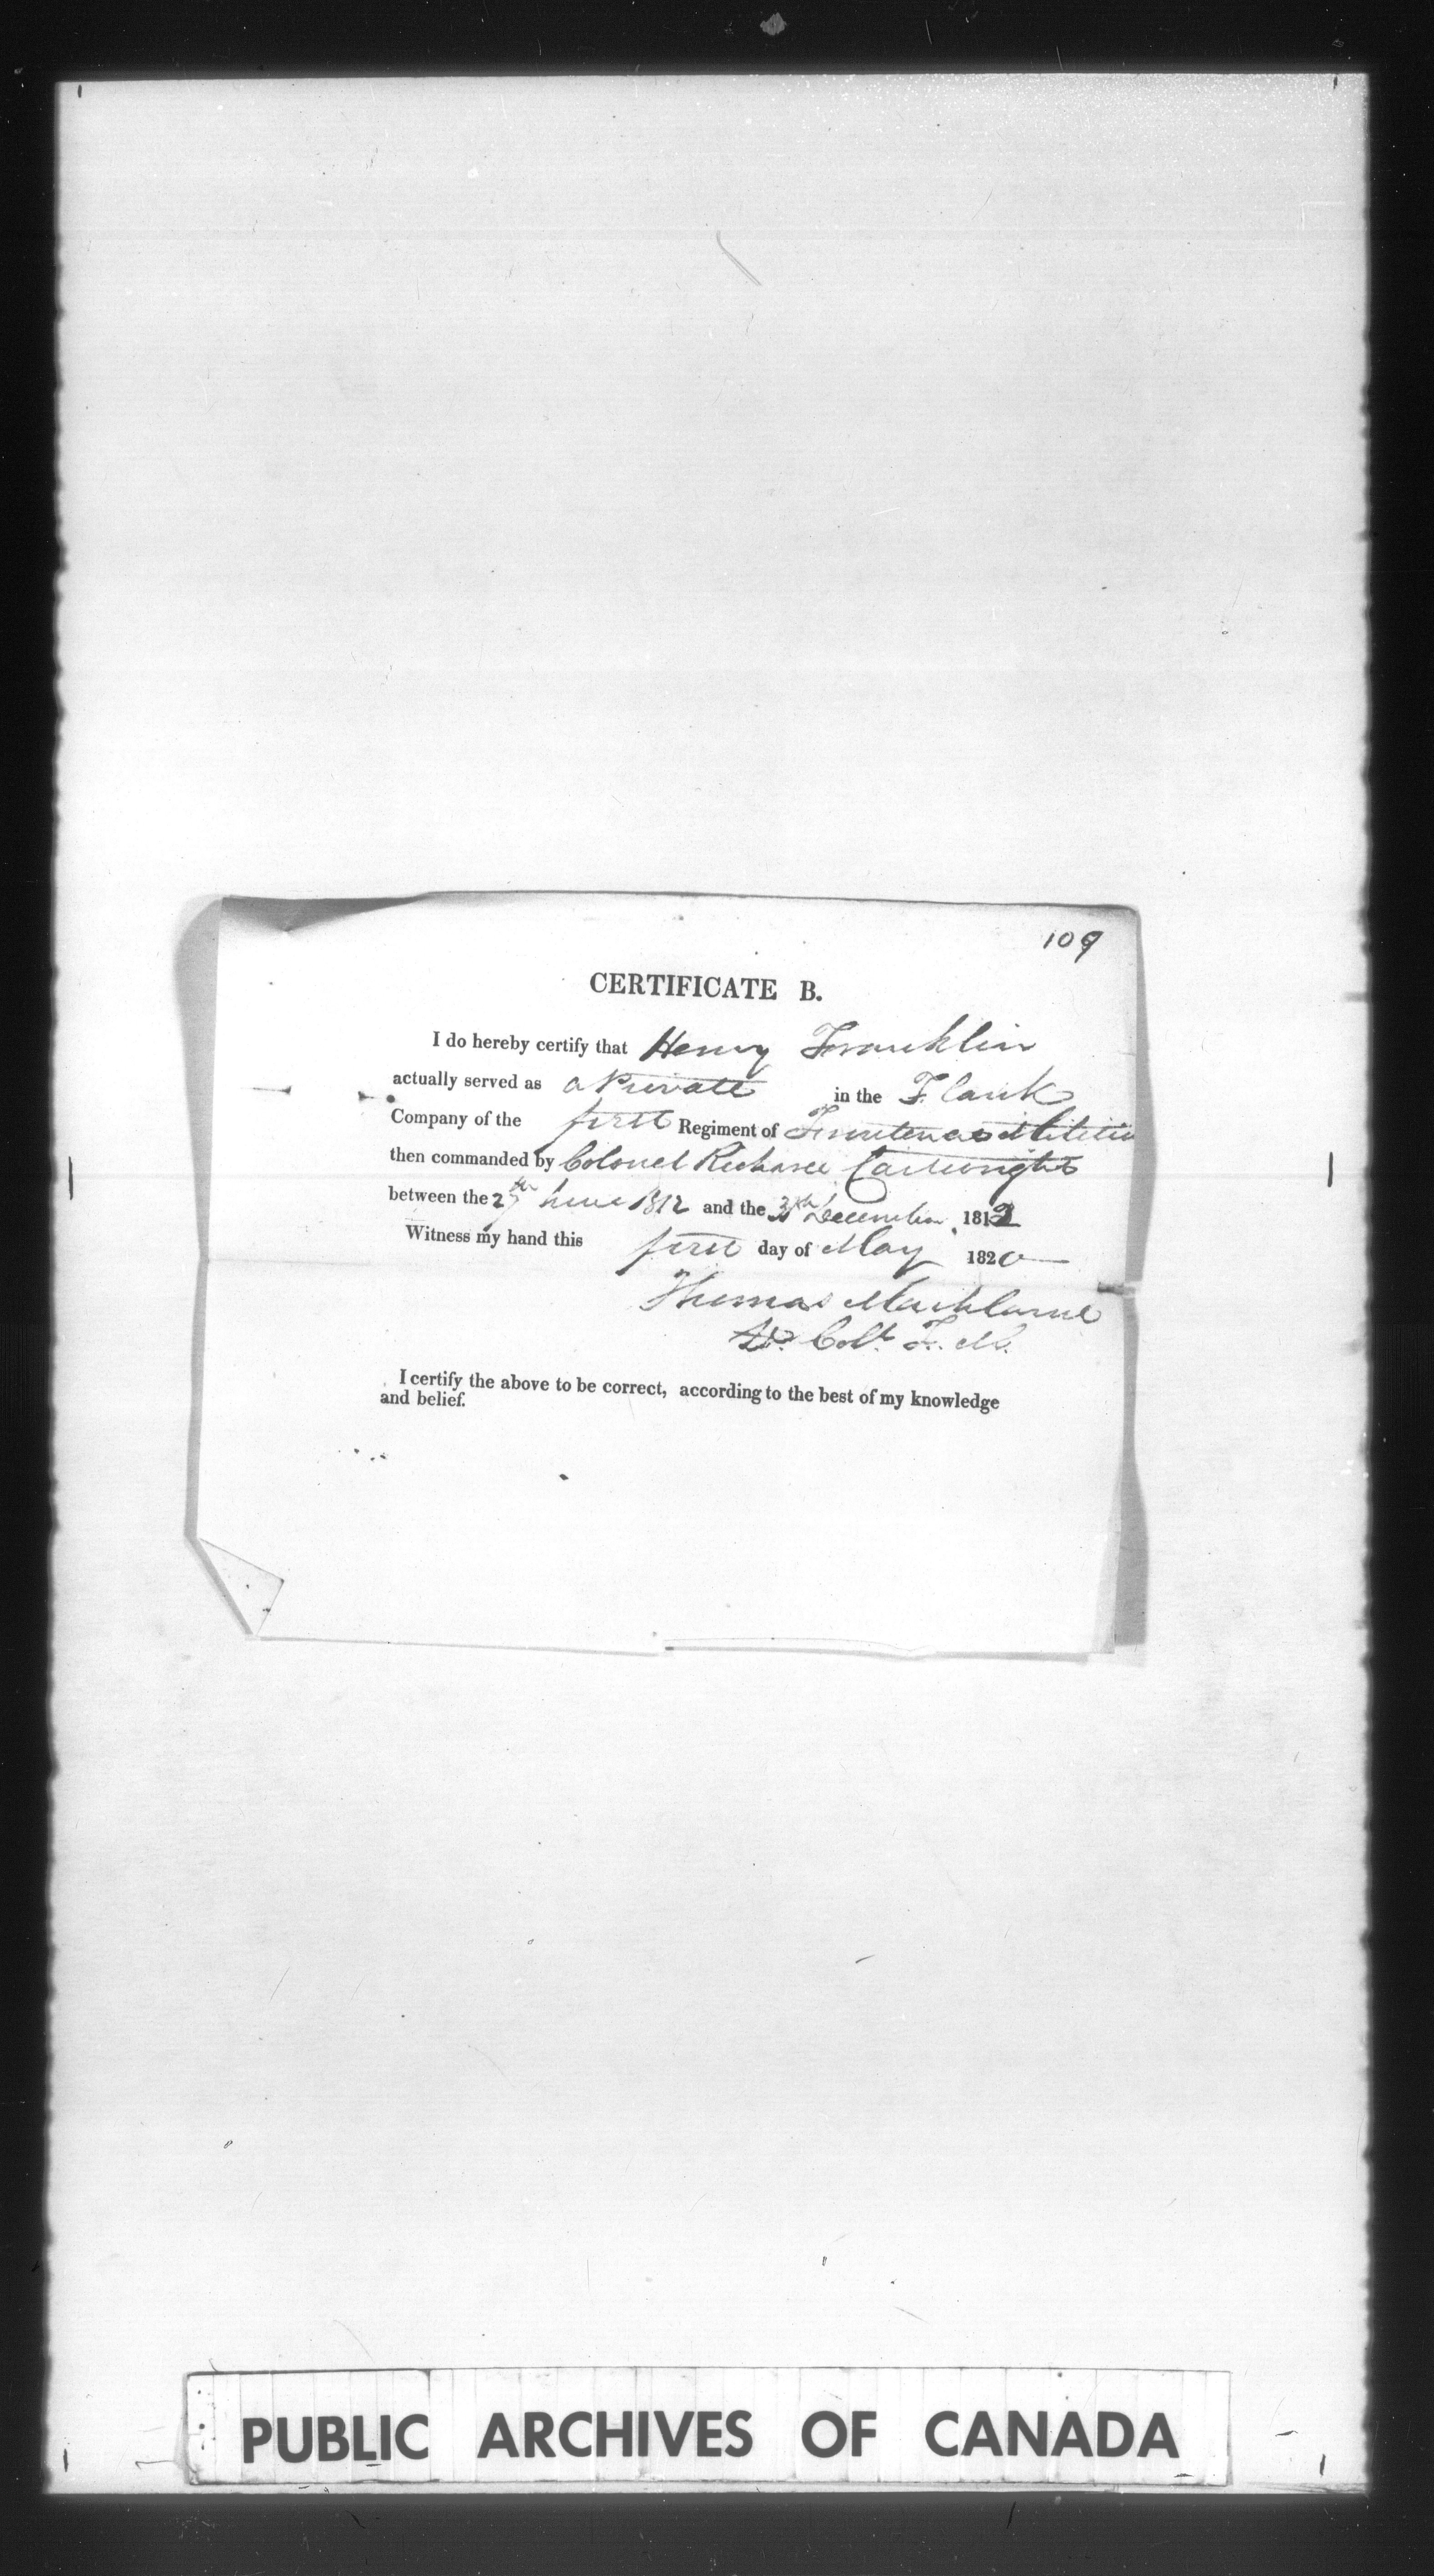 109
CERTIFICATE B.
I do hereby certify that Henry Franklin
actually served as a Private in the Flank
Company of the first Regiment of Frontenac Militia
then commanded by Colonel Richard Cartwright
between the 27th June 1812 and the December 1812
Witness my hand this first day of May 1820
Thomas Markland
Lt. Coll. F. M.
I certify the above to be correct, according to the best of my knowledge
and belief.
PUBLIC ARCHIVES OF CANADA